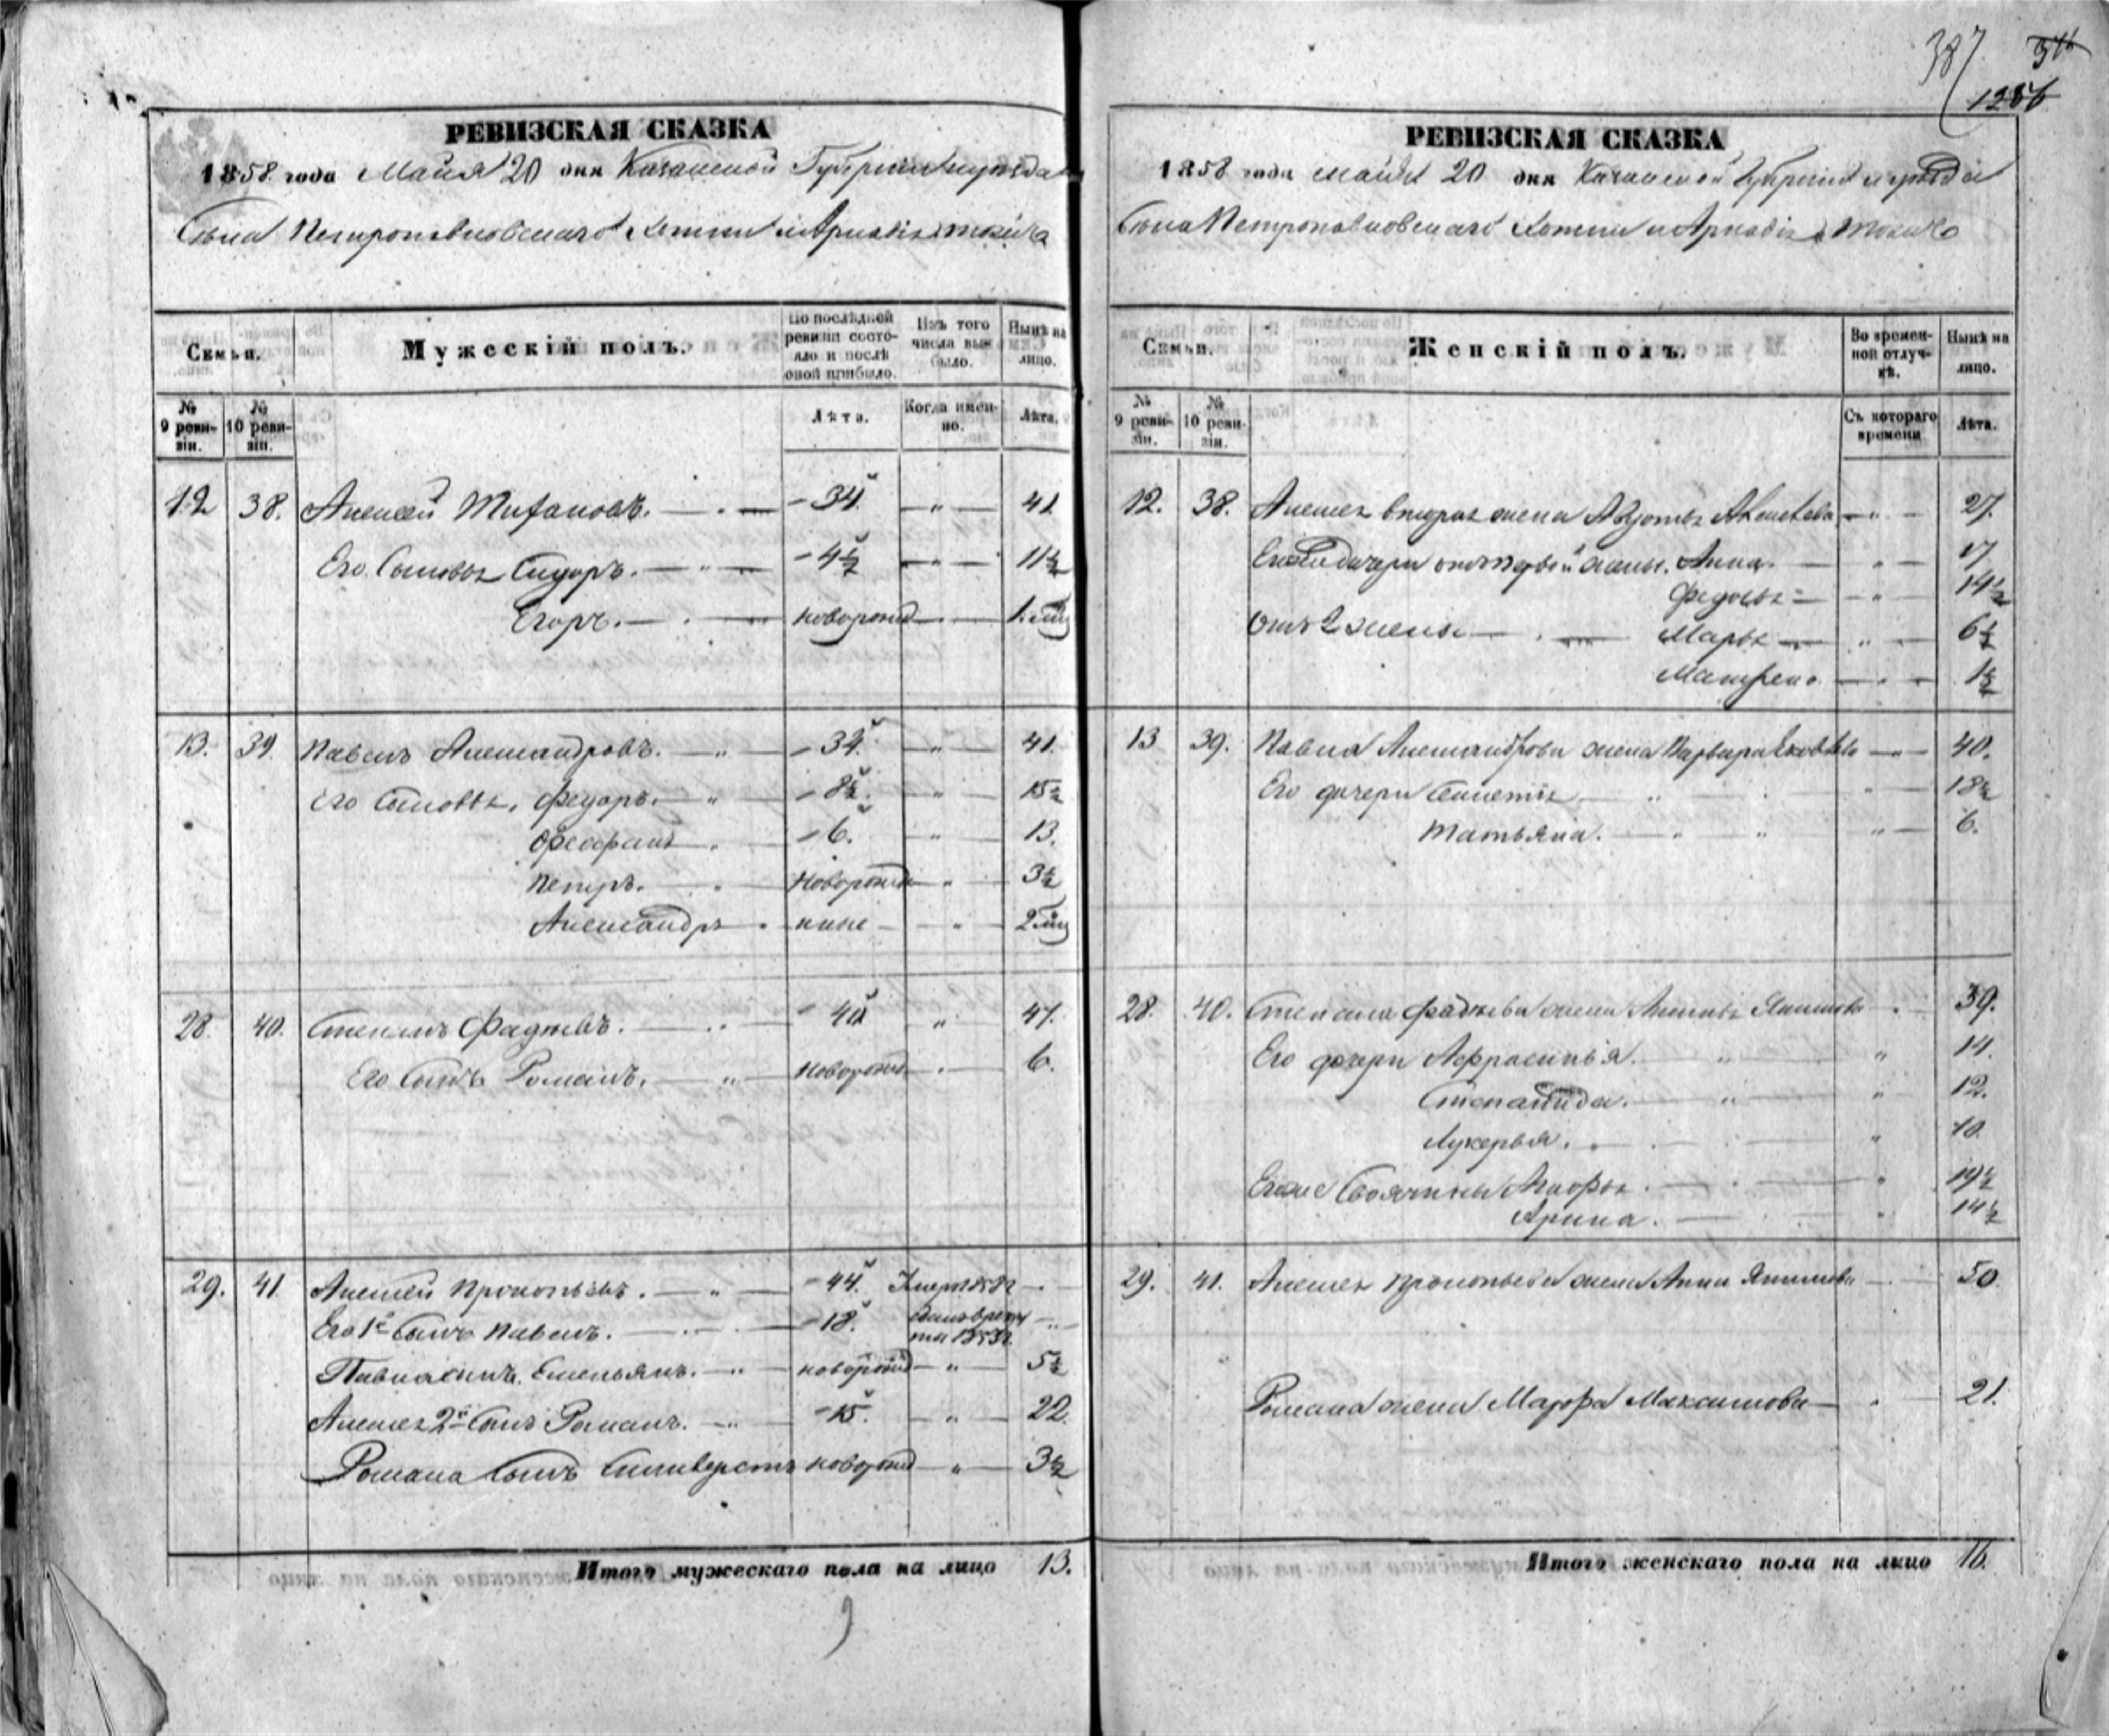 РЕВИЗСКАЯ СКАЗКА
1858 года Майя 20 дня Казанской Губернии и уезда
Села Петропавловскаго Котни и Арнавія тожъ
Семьи.
Мужескій полъ.
По послѣдней ревизіи состояло и послѣ оной прибыло.
Изъ того числа выбыло.
Нынѣ на лицо.
№ 9 ревизіи.
№ 10 ревизіи.
Лѣта.
Когда именно.
Лѣта.
12 38. Алексей — 34 „ 41
Его Сыновья Сидоръ. — 4½ „ 11½
Егоръ. — новорожд — 1. мц
13. 39. Павелъ Александровъ. — 34 „ 41.
Его Сыновья, Федоръ. „ 8½ „ 15½
Феофанъ — 6. „ 13.
Петръ. — Новорожд „ 3½
Александръ — „ 2 мц
28. 40. Степанъ Фадѣевъ. — 40 „ 47.
Его Сынъ Романъ. — „ Новорожд — 6.
29. 41. Алексей Прокопьевъ. — „ 44. Умеръ —
Его 1й Сынъ Павелъ. — 18.
Павла сынъ Емельянъ. — новорожд „ 5½
Алексея 2й Сынъ Романъ. — 15. „ 22.
Романа Сынъ Селиверстъ новорожд „ 3½
Итого мужескаго пола на лицо 13.
387
1256
РЕВИЗСКАЯ СКАЗКА
1858 года майя 20 дня Казанской Губернии и уезда
Села Петропавловскаго Котни и Арнавія тожъ
Семьи.
Женскій полъ.
Во временной отлучкѣ.
Нынѣ на лицо.
№ 9 ревизіи.
№ 10 ревизіи.
Съ котораго времени
Лѣта.
12. 38. Алексея вторая жена — „ — 27.
Его дочери от первой жены. Анна. — „ 17
Федосья — „ 14½
Отъ 2 жены — Марья — „ — 6½
Матрена — 1½
13 39. Павла Александрова жена Варвара Яковлева — 40.
Его дочери — „ 18½
Татьяна. — „ 6.
28. 40. Степана Фадѣева жена — 39.
Его дочери Афросинья. „ 14.
Степанида. — „ 12.
Лукерья. — „ 10
Его же Своячины — „ 19½
Арина. — 14½
29. 41. Алексея Прокопьева жена Анна — 50.
Романа жена Максимова — 21.
Итого женскаго пола на лицо 16.